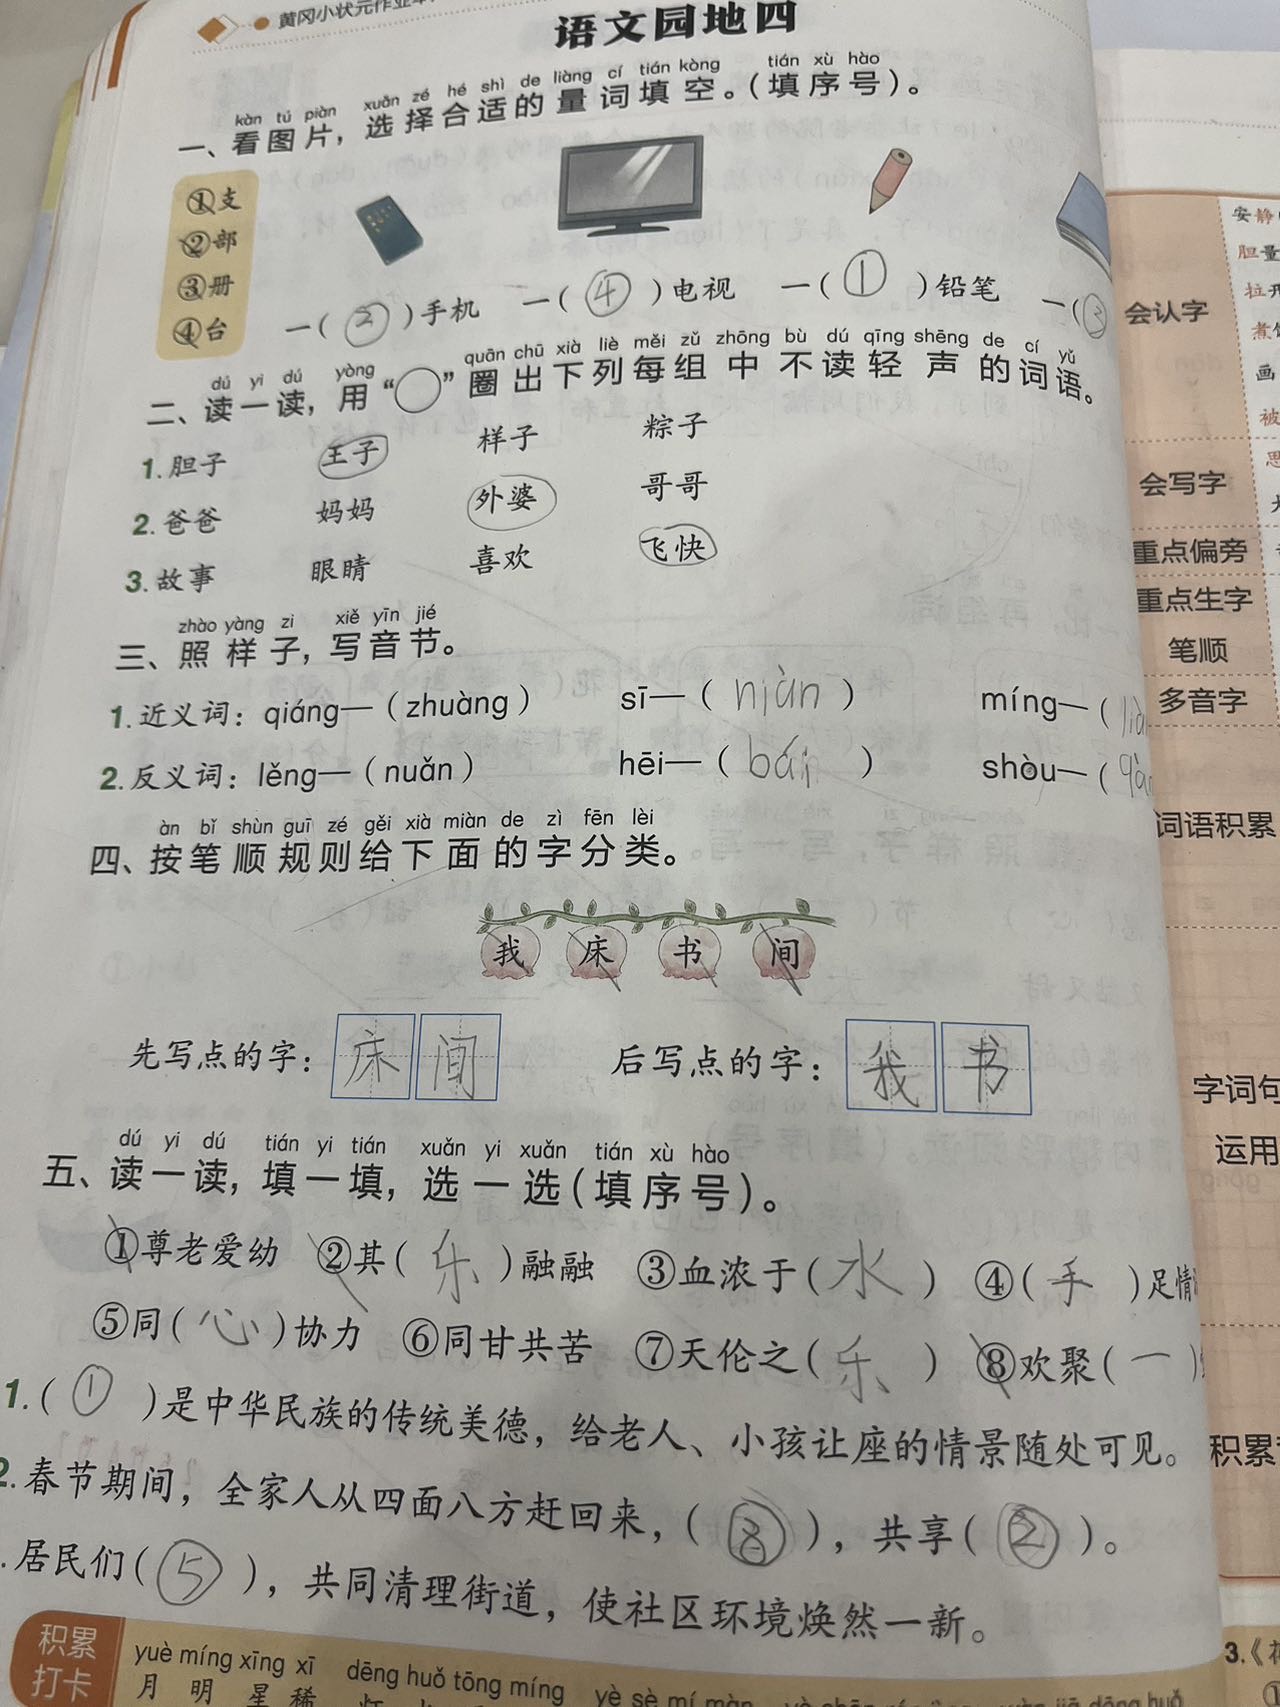 黄冈小状元作业本
语文园地四
kàn tú piàn xuǎn zé hé shì de liàng cí tián kòng tián xù hào
一、看图片，选择合适的量词填空。（填序号）。
①支
②部
③册
④台
一（②）手机 一（④）电视 一（①）铅笔 一（③
dú yi dú yòng quān chū xià liè měi zǔ zhōng bù dú qīng shēng de cí yǔ
二、读一读，用“○”圈出下列每组中不读轻声的词语。
1.胆子 王子 样子 粽子
2.爸爸 妈妈 外婆 哥哥
3.故事 眼睛 喜欢 飞快
zhào yàng zi xiě yīn jié
三、照样子，写音节。
1.近义词：qiáng—（zhuàng） sī—（niàn） míng—（
2.反义词：lěng—（nuǎn） hēi—（bái） shòu—（
àn bǐ shùn guī zé gěi xià miàn de zì fēn lèi
四、按笔顺规则给下面的字分类。
我 床 书 间
先写点的字：床 间 后写点的字：我 书
dú yi dú tián yi tián xuǎn yi xuǎn tián xù hào
五、读一读，填一填，选一选（填序号）。
①尊老爱幼 ②其（乐）融融 ③血浓于（水） ④（手）足情
⑤同（心）协力 ⑥同甘共苦 ⑦天伦之（乐） ⑧欢聚（一）
1.（①）是中华民族的传统美德，给老人、小孩让座的情景随处可见。
2.春节期间，全家人从四面八方赶回来，（⑧），共享（②）。
.居民们（⑤），共同清理街道，使社区环境焕然一新。
积累
打卡
yuè míng xīng xī dēng huǒ tōng míng yè sè mí màn
月明星稀
安静
胆量
会认字
煮
画
被
会写字
重点偏旁
重点生字
笔顺
多音字
词语积累
字词句
运用
积累
3.《